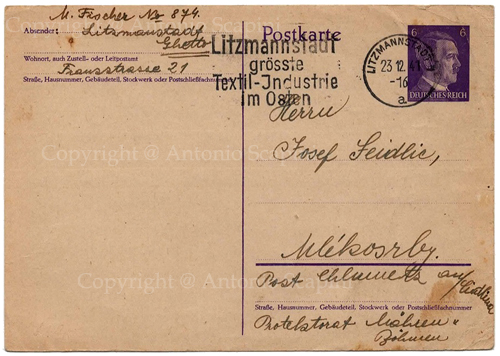 M. Fischer No 874.
Absender: Litzmannstadt
Ghetto
Wohnort, auch Zustell- oder Leitpostamt
21
Straße, Hausnummer, Gebäudeteil, Stockwerk oder Postschließfachnummer
Postkarte
Litzmannstadt
grösste
Textil-Industrie
im Osten
LITZMANNSTADT
23.12.41
-16
a
6 6
DEUTSCHES REICH
Herrn
Josef Seidlic,
Copyright @ Antonio
Mlékosrby.
Post Chlumetz an
Copyright @ Antonio
Straße, Hausnummer, Gebäudeteil, Stockwerk oder Postschließfachnummer
Protektorat Mähren u
Böhmen